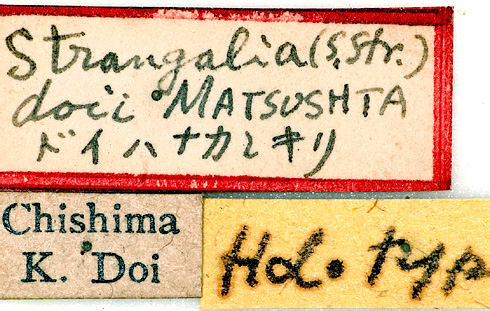 Strangalia (s. str.)
doii MATSUSHTA
ドイハナカミキリ
Chishima
K. Doi
Hol. typ